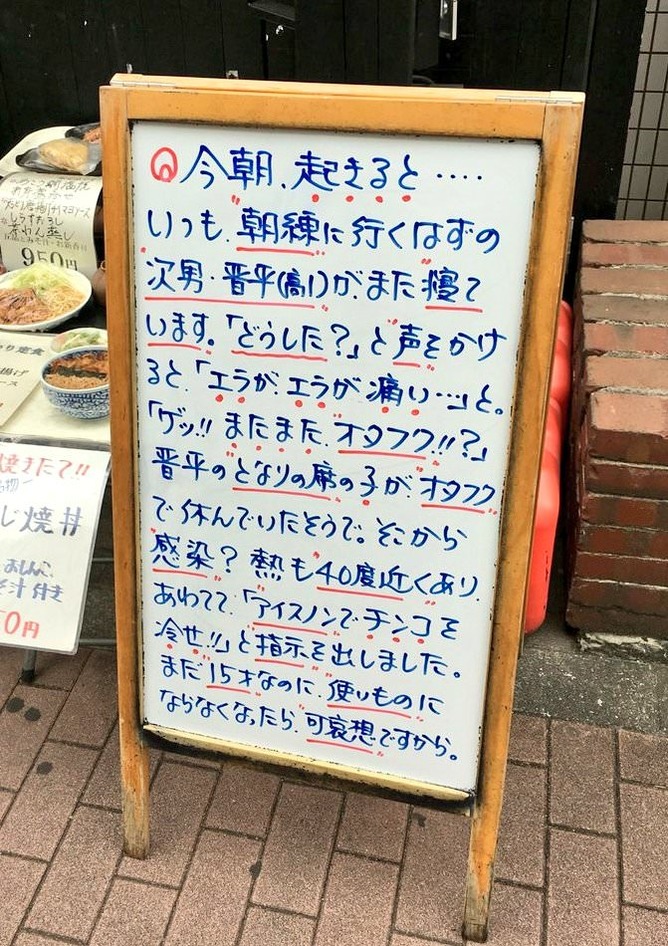 今朝、起きると‥‥
いつも、朝練に行くはずの
次男・晋平(高1)が、また寝て
います。「どうした?」と声をかけ
ると、「エラが、エラが痛い…」と。
「ゲッ!!またまた、オタフク!!?」
晋平のとなりの席の子が、オタフク
で休んでいたそうで。そこから
感染?熱も40度近くあり、
あわてて、「アイスノンでチンコを
冷せ!!」と指示を出しました。
まだ15才なのに、使いものに
ならなくなったら、可哀想ですから。
950円
り定食
焼きたて!!
じ焼丼
おしんこ
汁付き
50円